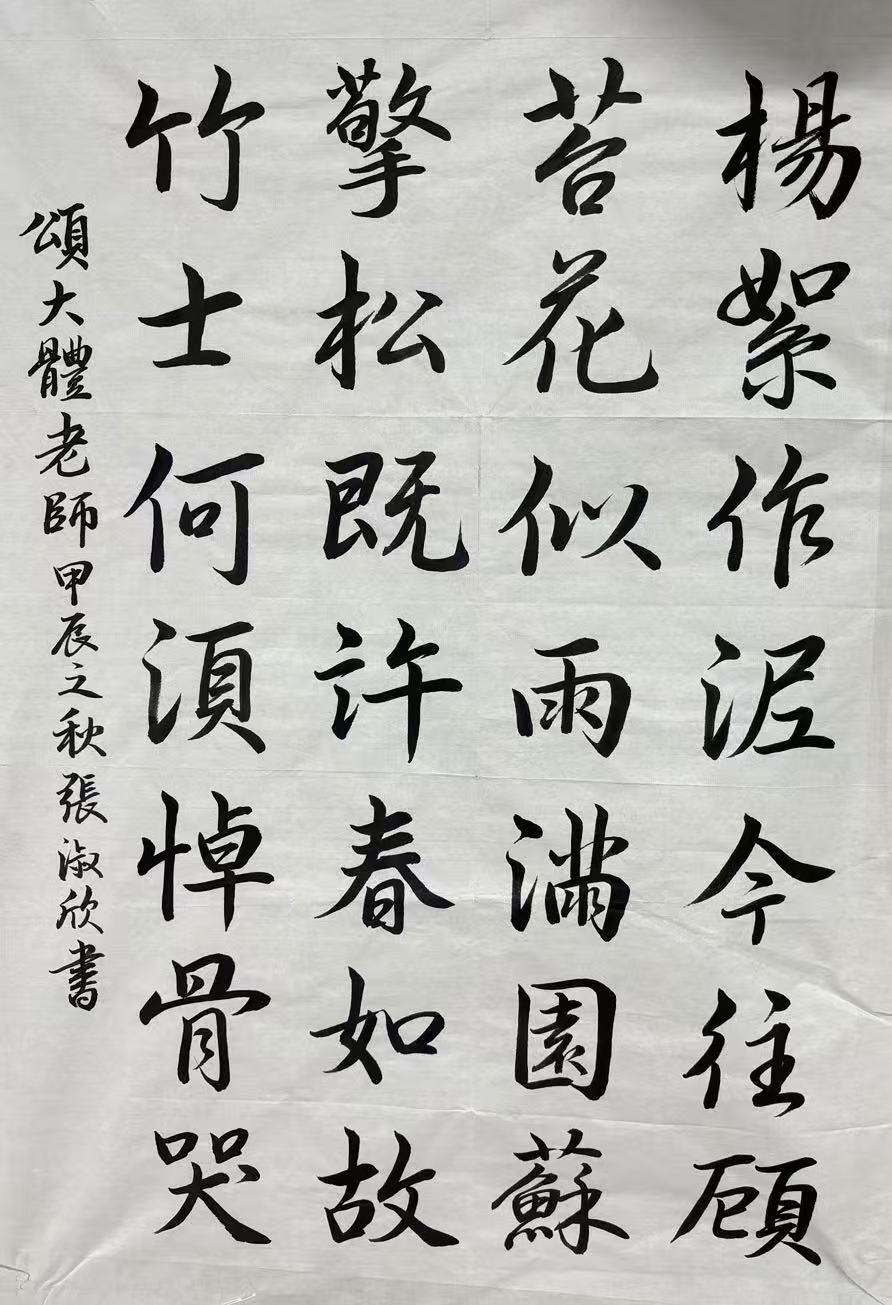 楊絮作泥今往顾
苔花似雨满園蘇
擎松既許春如故
竹士何須悼骨哭
頌大體老師甲辰之秋張淑欣書